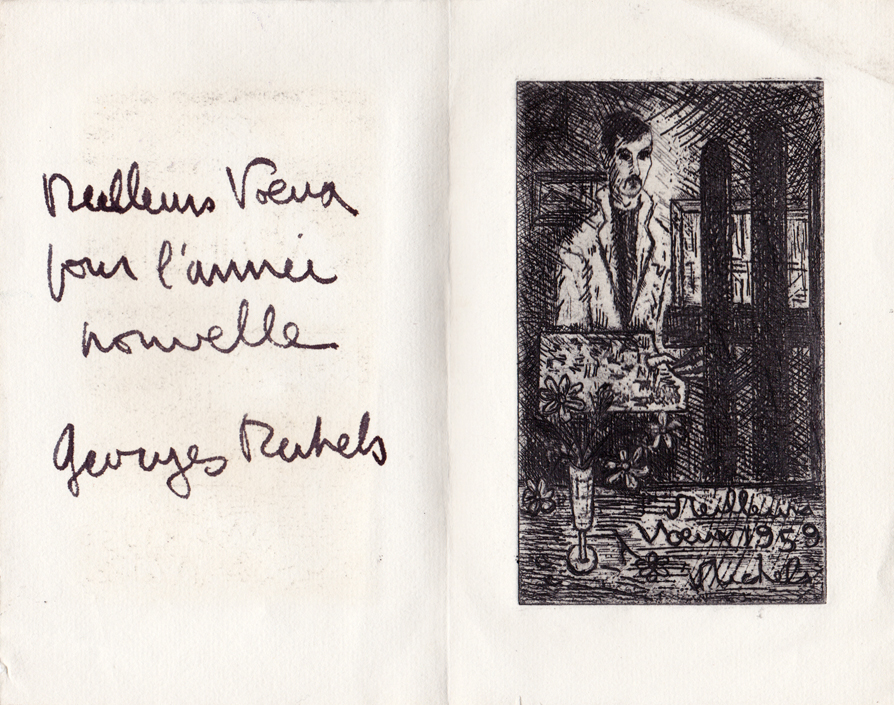 Meilleurs Voeux
pour l'année
nouvelle
Georges Michels
Meilleurs
Voeux 1959
Michels